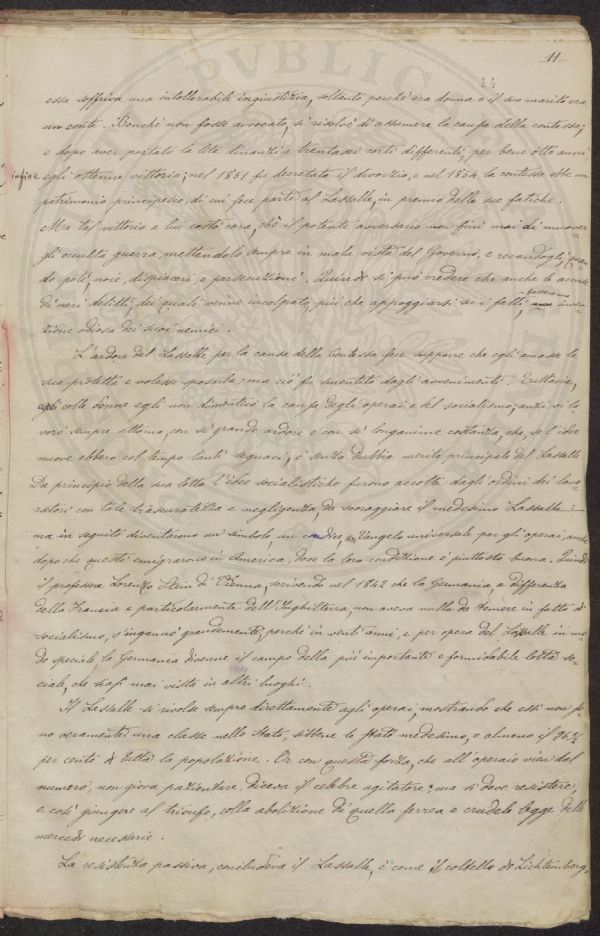 11
14
PVBLIC
essa soffriva una intollerabile ingiustizia, soltanto perché era donna e il suo marito era
un conte. Benché non fosse avvocato, si risolvé di assumere la causa della contessa;
e dopo aver portata la lite dinanzi a trentasei corti differenti, per bene otto anni
infine egli ottenne vittoria; nel 1851 fu decretato il divorzio, e nel 1854 la contessa ebbe un
patrimonio principesco, di cui fece parte al Lassalle, in premio delle sue fatiche.
Ma tal vittoria a lui costò cara, ché il potente avversario non finì mai di muover-
gli occulta guerra, mettendolo sempre in mala vista del Governo, e recandogli, quan-
do poté, noie, dispiaceri e persecuzioni. Quindi si può credere che anche le accuse
di neri delitti, dei quali venne incolpato, più che appoggiarsi su i fatti, fossero inven-
zione odiosa dei suoi nemici.
L'ardore del Lassalle per la causa della Contessa fece supporre che egli amasse la
sua protetta e volesse sposarla; ma ciò fu smentito dagli avvenimenti. Tuttavia,
colle donne egli non dimenticò la causa degli operai e del socialismo; anzi vi la-
vorò sempre attorno, con sì grande ardore e con sì longanime costanza, che, se l'idee
nuove ebbero col tempo tanti seguaci, è senza dubbio merito principale del Lassalle
Da principio della sua lotta l'idee socialistiche furono accolte dagli ordini dei lavo-
ratori con tale trascuratezza e negligenza, da scoraggiare il medesimo Lassalle:
ma in seguito diventarono un simbolo, un codice, un Vangelo universale per gli operai, anche
dopo che questi emigrarono in America, dove la loro condizione è piuttosto buona. Quindi
il professore Lorenzo Stein di Vienna, scrivendo nel 1842 che la Germania, a differenza
della Francia e particolarmente dell'Inghilterra, non aveva nulla da temere in fatto di
socialismo, s'ingannò grandemente, perché in venti anni, e per opera del Lassalle in mo-
do speciale la Germania divenne il campo della più importante e formidabile lotta so-
ciale, che siasi mai vista in altri luoghi.
Il Lassalle si rivolse sempre direttamente agli operai, mostrando che essi non so-
no veramente una classe nello Stato, sibbene lo Stato medesimo, e almeno il 96
per cento di tutta la popolazione. Or con questa forza, che all'operaio vien dal
numero, non giova pazientare, diceva il celebre agitatore; ma si deve resistere,
e così giungere al trionfo, colla abolizione di quella ferrea e crudele legge delle
mercedi necessarie.
La resistenza passiva, concludeva il Lassalle, è come il coltello di Lichtenberg,